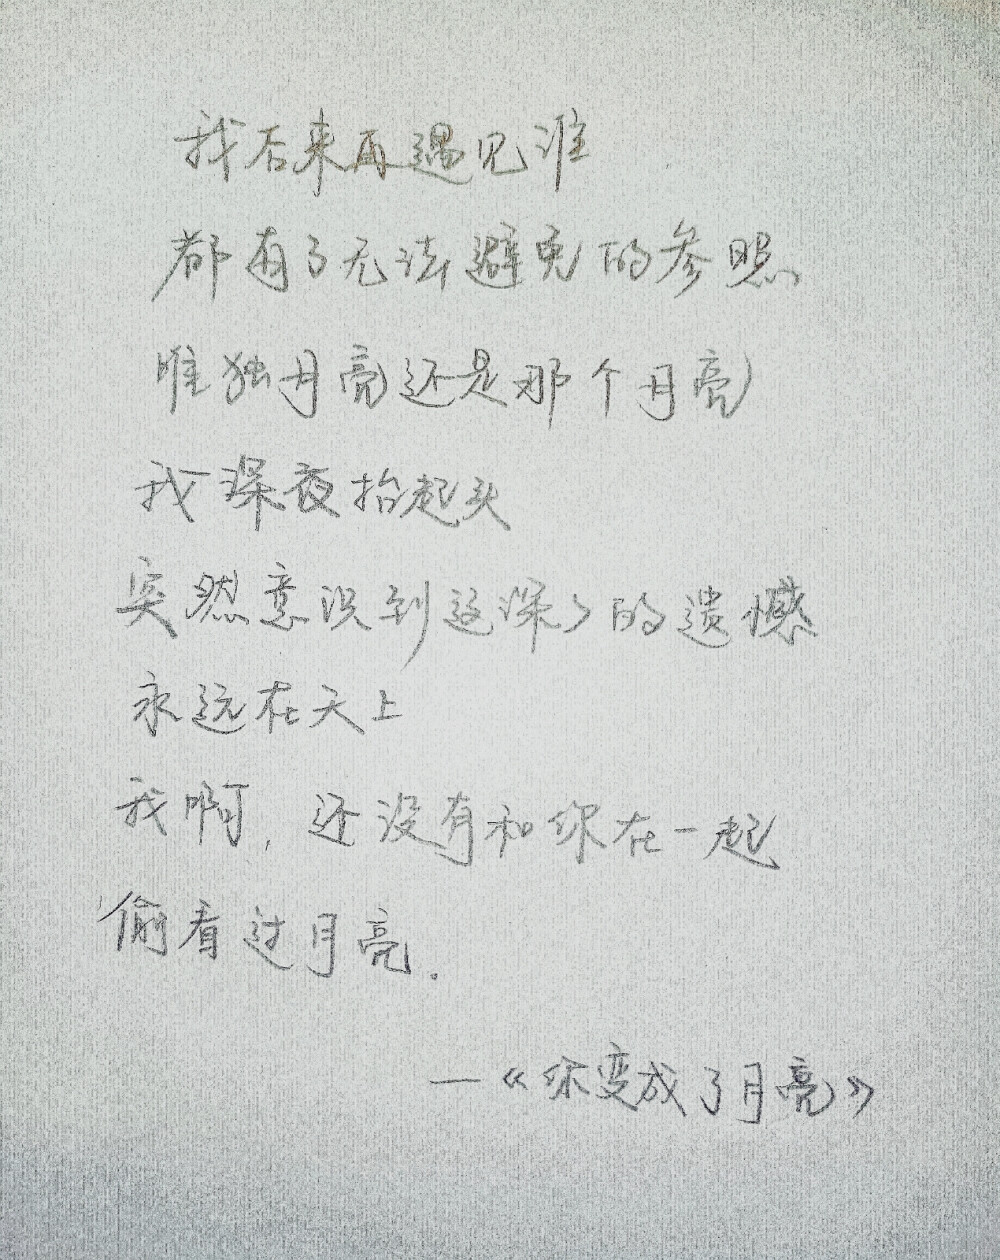 我后来再遇见谁
都有了无法避免的参照
唯独月亮还是那个月亮
我深夜抬起头
突然意识到这深深的遗憾
永远在天上
我啊,还没有和你在一起
偷看过月亮.
—《你变成了月亮》